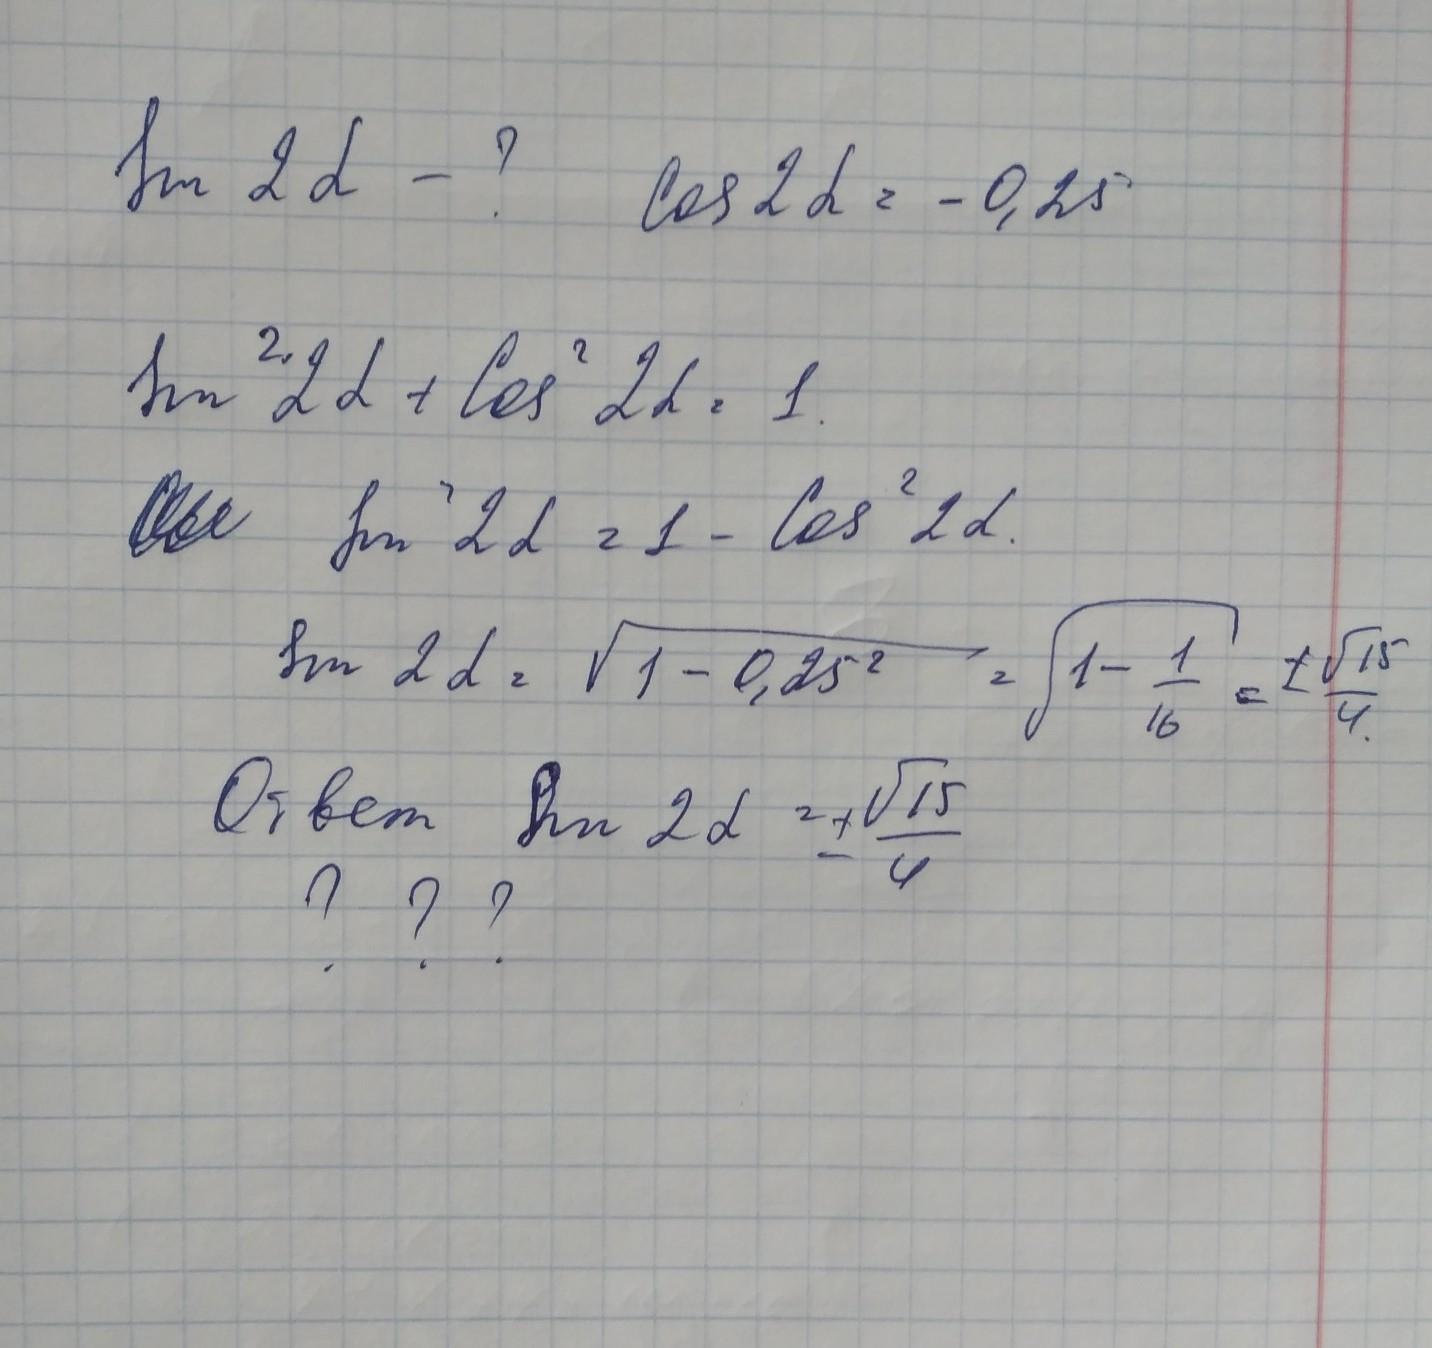 Sin 2α - ? Cos 2α = - 0,25
Sin² 2α + Cos² 2α = 1.
Sin² 2α = 1 - Cos² 2α.
Sin 2α = √1 - 0,25² = √1 - 1/16 = ± √15/4.
Ответ Sin 2α = ± √15/4
? ? ?